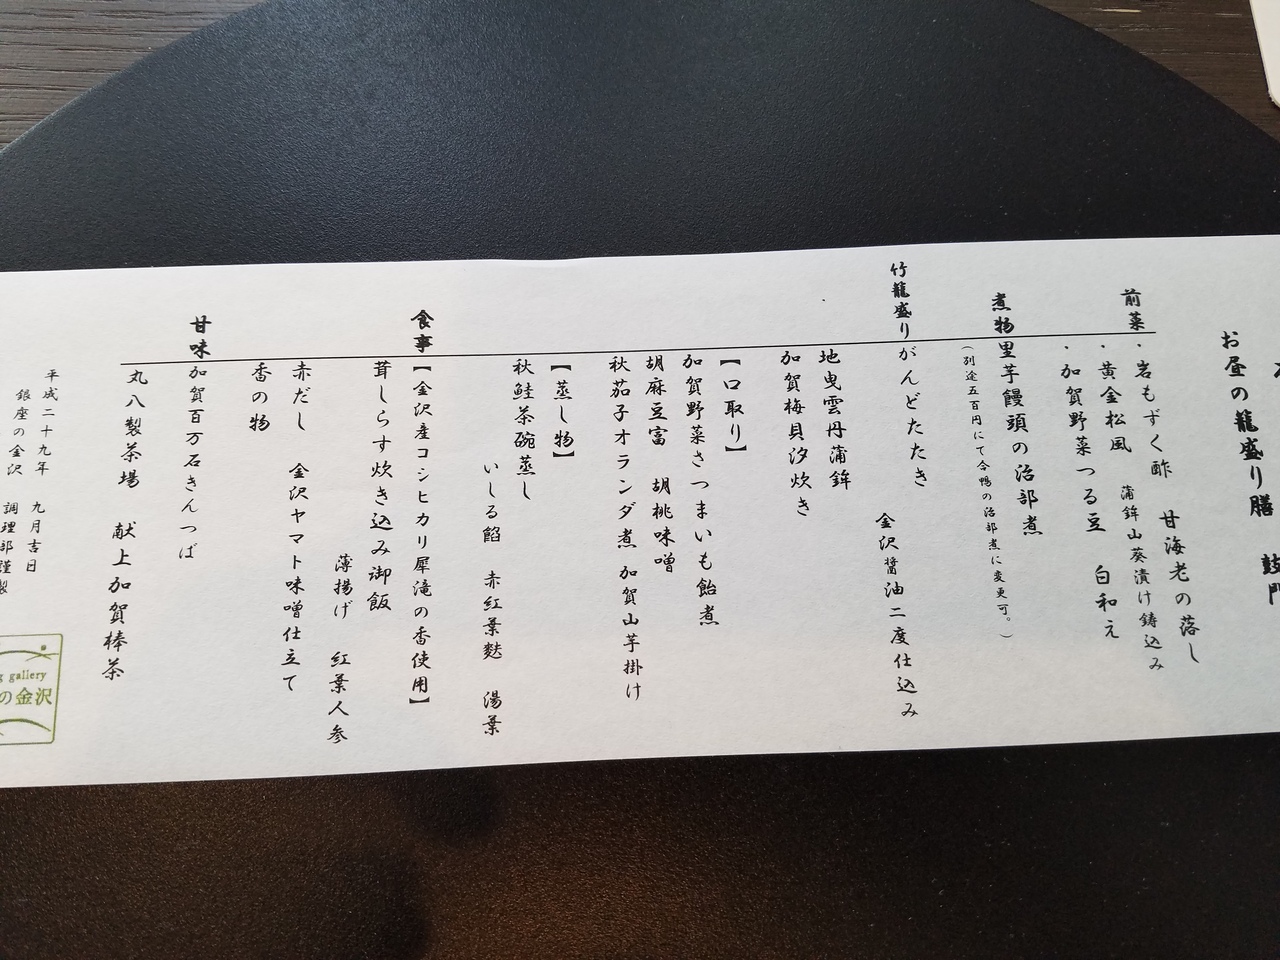 お昼の籠盛り膳　鼓門
前菜
・岩もずく酢　甘海老の落し
・黄金松風　蒲鉾山葵漬け鋳込み
・加賀野菜つる豆　白和え
煮物
里芋饅頭の治部煮
（別途五百円にて合鴨の治部煮に変更可。）
竹籠盛り
がんどたたき　金沢醤油二度仕込み
地曳雲丹蒲鉾
加賀梅貝汐炊き
【口取り】
加賀野菜さつまいも飴煮
胡麻豆富　胡桃味噌
秋茄子オランダ煮　加賀山芋掛け
【蒸し物】
秋鮭茶碗蒸し
いしる餡　赤紅葉麩　湯葉
食事
【金沢産コシヒカリ犀滝の香使用】
茸しらす炊き込み御飯
薄揚げ　紅葉人参
赤だし　金沢ヤマト味噌仕立て
香の物
甘味
加賀百万石きんつば
丸八製茶場　献上加賀棒茶
平成二十九年　九月吉日
銀座の金沢　調理部謹製
gallery
の金沢